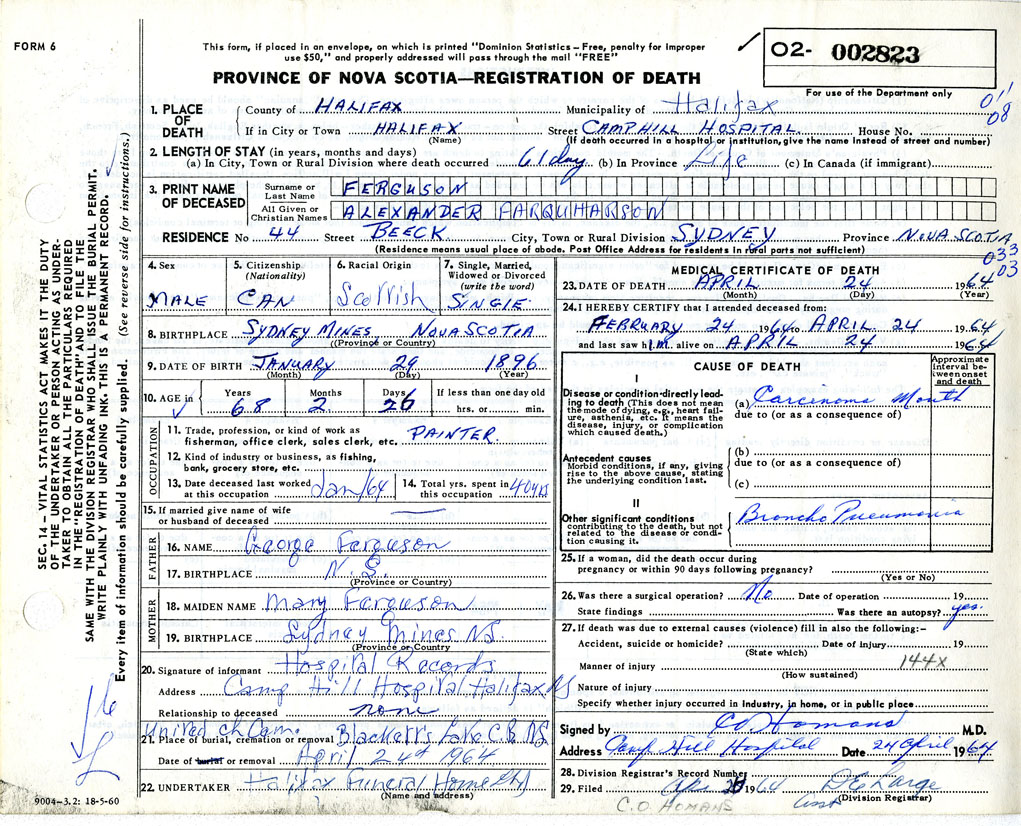 FORM 6
This form, if placed in an envelope, on which is printed "Dominion Statistics – Free, penalty for improper
use $50," and properly addressed will pass through the mail "FREE"
PROVINCE OF NOVA SCOTIA—REGISTRATION OF DEATH
O2- 002823
For use of the Department only
011
08
1. PLACE OF DEATH
County of HALIFAX Municipality of Halifax
If in City or Town HALIFAX Street CAMP HILL HOSPITAL House No.
(Name) (If death occurred in a hospital or institution, give the name instead of street and number)
2. LENGTH OF STAY (in years, months and days)
(a) In City, Town or Rural Division where death occurred 61 day (b) In Province Life (c) In Canada (if immigrant)
3. PRINT NAME OF DECEASED
Surname or Last Name FERGUSON
All Given or Christian Names ALEXANDER FARQUHARSON
RESIDENCE No 44 Street BEECK City, Town or Rural Division SYDNEY Province NOVA SCOTIA
(Residence means usual place of abode. Post Office Address for residents in rural parts not sufficient)
033
03
4. Sex MALE
5. Citizenship (Nationality) CAN
6. Racial Origin Scottish
7. Single, Married, Widowed or Divorced (write the word) SINGLE
8. BIRTHPLACE SYDNEY MINES, NOVA SCOTIA
(Province or Country)
9. DATE OF BIRTH JANUARY 29 1896
(Month) (Day) (Year)
10. AGE in Years 68 Months 2 Days 26 If less than one day old hrs. or min.
OCCUPATION
11. Trade, profession, or kind of work as fisherman, office clerk, sales clerk, etc. PAINTER
12. Kind of industry or business, as fishing, bank, grocery store, etc.
13. Date deceased last worked at this occupation Jan/64
14. Total yrs. spent in this occupation 40 yrs
15. If married give name of wife or husband of deceased
FATHER
16. NAME George Ferguson
17. BIRTHPLACE N.S.
(Province or Country)
MOTHER
18. MAIDEN NAME Mary Ferguson
19. BIRTHPLACE Sydney Mines NS.
(Province or Country)
20. Signature of informant Hospital Records
Address Camp Hill Hospital, Halifax NS
Relationship to deceased none
United ch Cem.
21. Place of burial, cremation or removal Blackett's Lake C.B. NS
Date of burial or removal April 24th 1964
22. UNDERTAKER Halifax Funeral Home Ltd
(Name and address)
9004-3.2: 18-5-60
MEDICAL CERTIFICATE OF DEATH
23. DATE OF DEATH APRIL 24 1964
(Month) (Day) (Year)
24. I HEREBY CERTIFY that I attended deceased from:
FEBRUARY 24 1964 to APRIL 24 1964
and last saw him alive on APRIL 24 1964
CAUSE OF DEATH
Approximate interval between onset and death
I
Disease or condition directly leading to death (This does not mean the mode of dying, e.g., heart failure, asthenia, etc. It means the disease, injury, or complication which caused death.)
(a) Carcinoma Mouth
due to (or as a consequence of)
Antecedent causes
Morbid conditions, if any, giving rise to the above cause, stating the underlying condition last.
(b)
due to (or as a consequence of)
(c)
II
Other significant conditions contributing to the death, but not related to the disease or condition causing it.
Broncho Pneumonia
25. If a woman, did the death occur during pregnancy or within 90 days following pregnancy?
(Yes or No)
26. Was there a surgical operation? No Date of operation 19
State findings Was there an autopsy? yes.
27. If death was due to external causes (violence) fill in also the following:–
Accident, suicide or homicide? Date of injury 19
(State which)
144X
Manner of injury
(How sustained)
Nature of injury
Specify whether injury occurred in industry, in home, or in public place
Signed by C O Homans M.D.
Address Camp Hill Hospital Date 24 April 1964
28. Division Registrar's Record Number
29. Filed 1964
(Division Registrar)
C. O HOMANS
SEC. 14– VITAL STATISTICS ACT MAKES IT THE DUTY
OF THE UNDERTAKER OR PERSON ACTING AS UNDER-
TAKER TO OBTAIN ALL THE PARTICULARS REQUIRED
IN THE "REGISTRATION OF DEATH" AND TO FILE THE
SAME WITH THE DIVISION REGISTRAR WHO SHALL ISSUE THE BURIAL PERMIT.
WRITE PLAINLY WITH UNFADING INK. THIS IS A PERMANENT RECORD.
Every item of information should be carefully supplied. (See reverse side for instructions.)